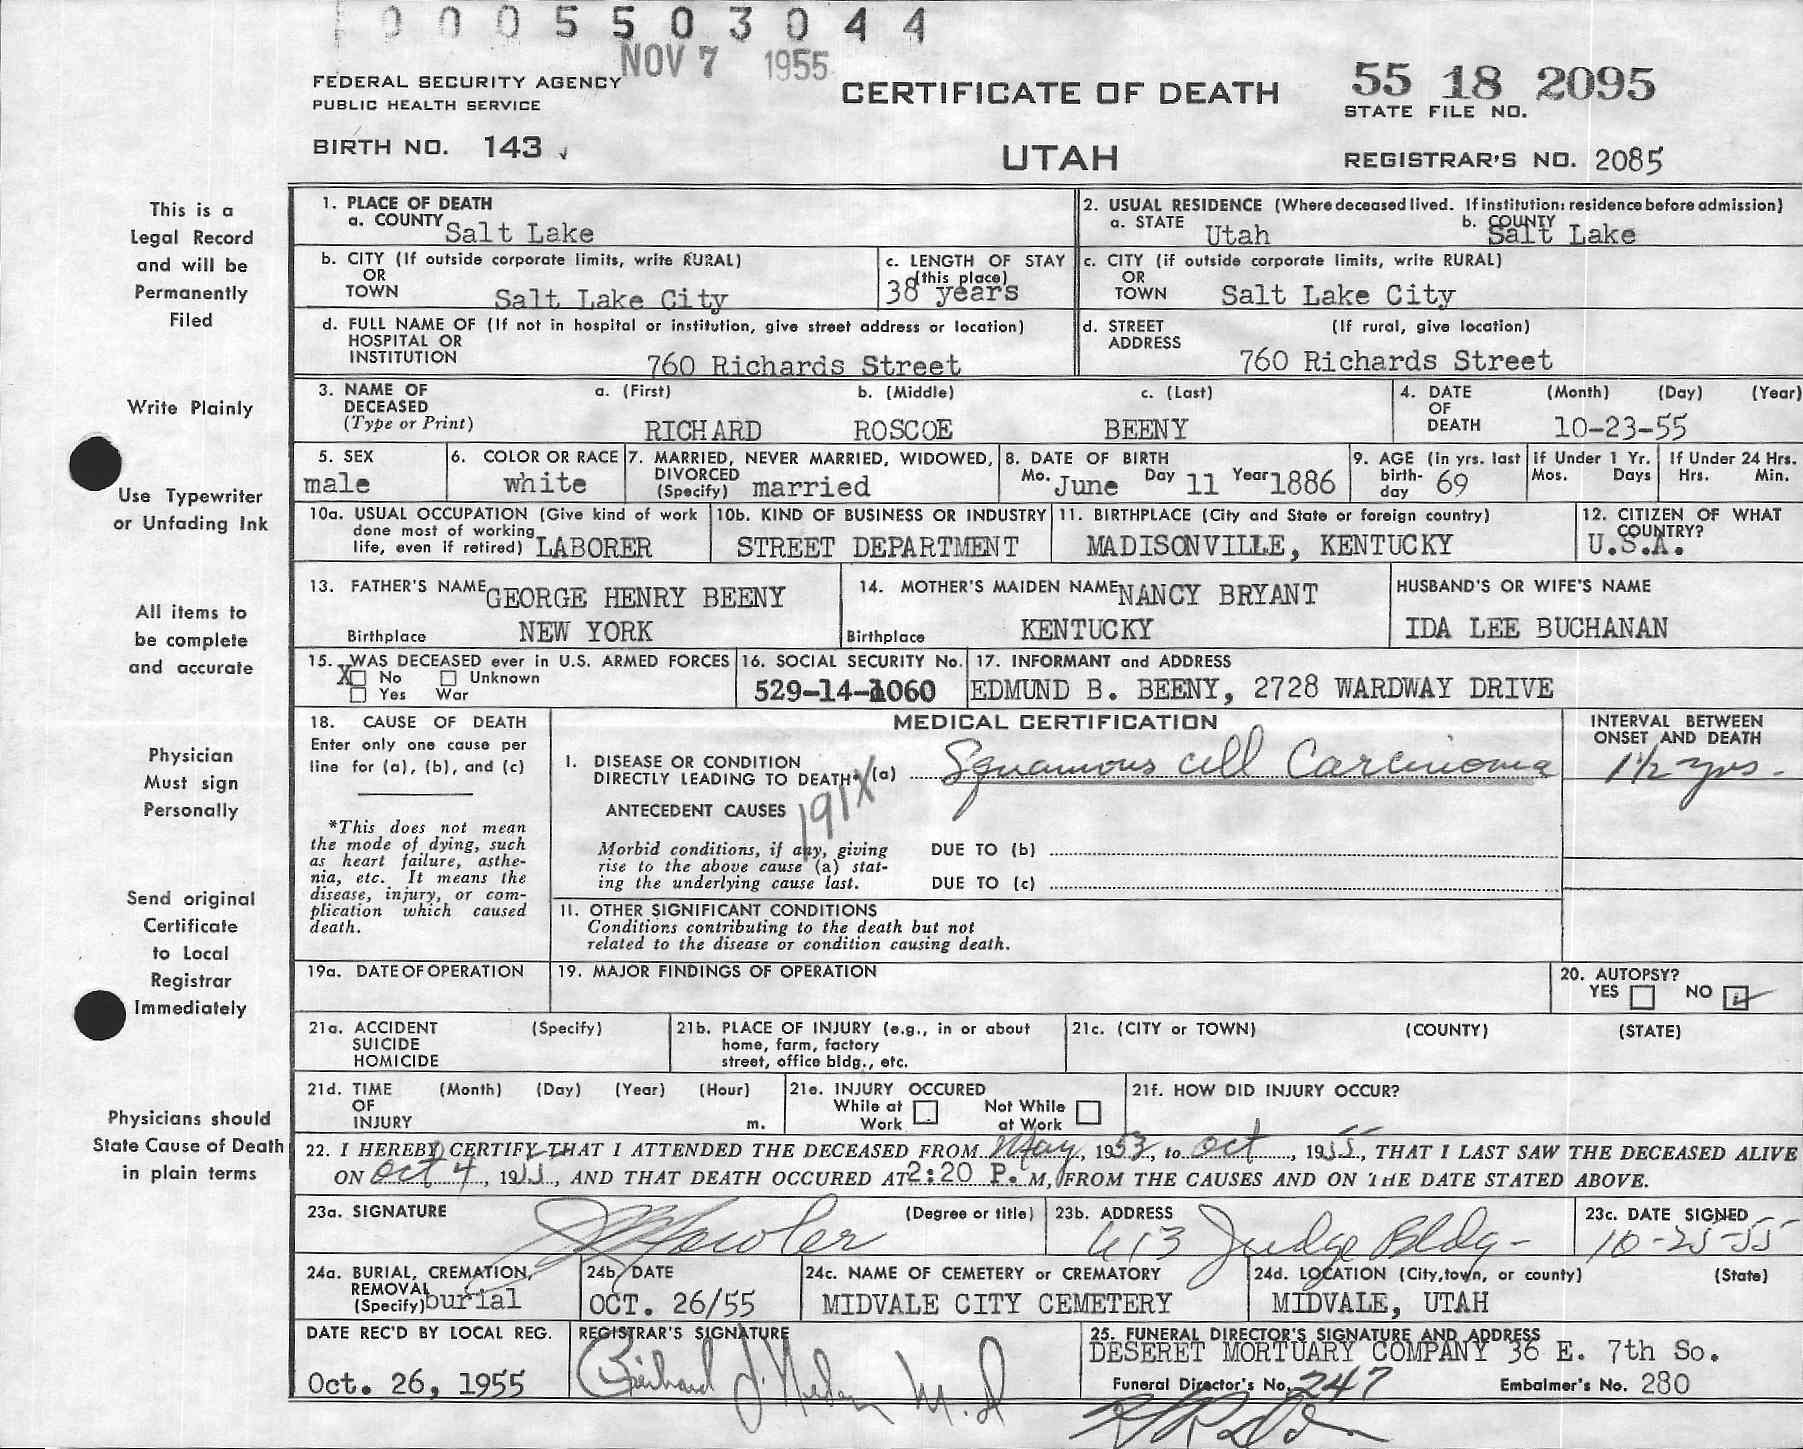 0005503044
NOV 7 1955
FEDERAL SECURITY AGENCY
PUBLIC HEALTH SERVICE
CERTIFICATE OF DEATH
55 18 2095
STATE FILE NO.
BIRTH NO. 143
UTAH
REGISTRAR'S NO. 2085
This is a
Legal Record
and will be
Permanently
Filed
Write Plainly
Use Typewriter
or Unfading Ink
All items to
be complete
and accurate
Physician
Must sign
Personally
Send original
Certificate
to Local
Registrar
Immediately
Physicians should
State Cause of Death
in plain terms
1. PLACE OF DEATH
a. COUNTY Salt Lake
2. USUAL RESIDENCE (Where deceased lived. If institution: residence before admission)
a. STATE Utah b. COUNTY Salt Lake
b. CITY (If outside corporate limits, write RURAL)
OR
TOWN Salt Lake City
c. LENGTH OF STAY
(this place)
38 years
c. CITY (if outside corporate limits, write RURAL)
OR
TOWN Salt Lake City
d. FULL NAME OF (If not in hospital or institution, give street address or location)
HOSPITAL OR
INSTITUTION 760 Richards Street
d. STREET (If rural, give location)
ADDRESS 760 Richards Street
3. NAME OF a. (First) b. (Middle) c. (Last)
DECEASED
(Type or Print) RICHARD ROSCOE BEENY
4. DATE (Month) (Day) (Year)
OF
DEATH 10-23-55
5. SEX
male
6. COLOR OR RACE
white
7. MARRIED, NEVER MARRIED, WIDOWED,
DIVORCED
(Specify) married
8. DATE OF BIRTH
Mo. June Day 11 Year 1886
9. AGE (in yrs. last
birth-
day 69
If Under 1 Yr.
Mos. Days
If Under 24 Hrs.
Hrs. Min.
10a. USUAL OCCUPATION (Give kind of work
done most of working
life, even if retired) LABORER
10b. KIND OF BUSINESS OR INDUSTRY
STREET DEPARTMENT
11. BIRTHPLACE (City and State or foreign country)
MADISONVILLE, KENTUCKY
12. CITIZEN OF WHAT
COUNTRY?
U.S.A.
13. FATHER'S NAME GEORGE HENRY BEENY
Birthplace NEW YORK
14. MOTHER'S MAIDEN NAME NANCY BRYANT
Birthplace KENTUCKY
HUSBAND'S OR WIFE'S NAME
IDA LEE BUCHANAN
15. WAS DECEASED ever in U.S. ARMED FORCES
X No Unknown
Yes War
16. SOCIAL SECURITY No.
529-14-1060
17. INFORMANT and ADDRESS
EDMUND B. BEENY, 2728 WARDWAY DRIVE
18. CAUSE OF DEATH
Enter only one cause per
line for (a), (b), and (c)
*This does not mean
the mode of dying, such
as heart failure, asthe-
nia, etc. It means the
disease, injury, or com-
plication which caused
death.
MEDICAL CERTIFICATION
I. DISEASE OR CONDITION
DIRECTLY LEADING TO DEATH* (a) Squamous cell Carcinoma
191X
ANTECEDENT CAUSES
Morbid conditions, if any, giving
rise to the above cause (a) stat-
ing the underlying cause last.
DUE TO (b)
DUE TO (c)
INTERVAL BETWEEN
ONSET AND DEATH
1 1/2 yrs.
II. OTHER SIGNIFICANT CONDITIONS
Conditions contributing to the death but not
related to the disease or condition causing death.
19a. DATE OF OPERATION
19. MAJOR FINDINGS OF OPERATION
20. AUTOPSY?
YES NO
21a. ACCIDENT (Specify)
SUICIDE
HOMICIDE
21b. PLACE OF INJURY (e.g., in or about
home, farm, factory
street, office bldg., etc.
21c. (CITY or TOWN) (COUNTY) (STATE)
21d. TIME (Month) (Day) (Year) (Hour)
OF
INJURY m.
21e. INJURY OCCURED
While at Not While
Work at Work
21f. HOW DID INJURY OCCUR?
22. I HEREBY CERTIFY THAT I ATTENDED THE DECEASED FROM May, 1953, to Oct, 1955, THAT I LAST SAW THE DECEASED ALIVE
ON Oct 4, 1955, AND THAT DEATH OCCURED AT 2:20 P. M, FROM THE CAUSES AND ON THE DATE STATED ABOVE.
23a. SIGNATURE Fowler (Degree or title)
23b. ADDRESS
613 Judge Bldg-
23c. DATE SIGNED
10-25-55
24a. BURIAL, CREMATION,
REMOVAL
(Specify) burial
24b. DATE
OCT. 26/55
24c. NAME OF CEMETERY or CREMATORY
MIDVALE CITY CEMETERY
24d. LOCATION (City, town, or county) (State)
MIDVALE, UTAH
DATE REC'D BY LOCAL REG.
Oct. 26, 1955
REGISTRAR'S SIGNATURE
M.D
25. FUNERAL DIRECTOR'S SIGNATURE AND ADDRESS
DESERET MORTUARY COMPANY 36 E. 7th So.
Funeral Director's No. 247 Embalmer's No. 280